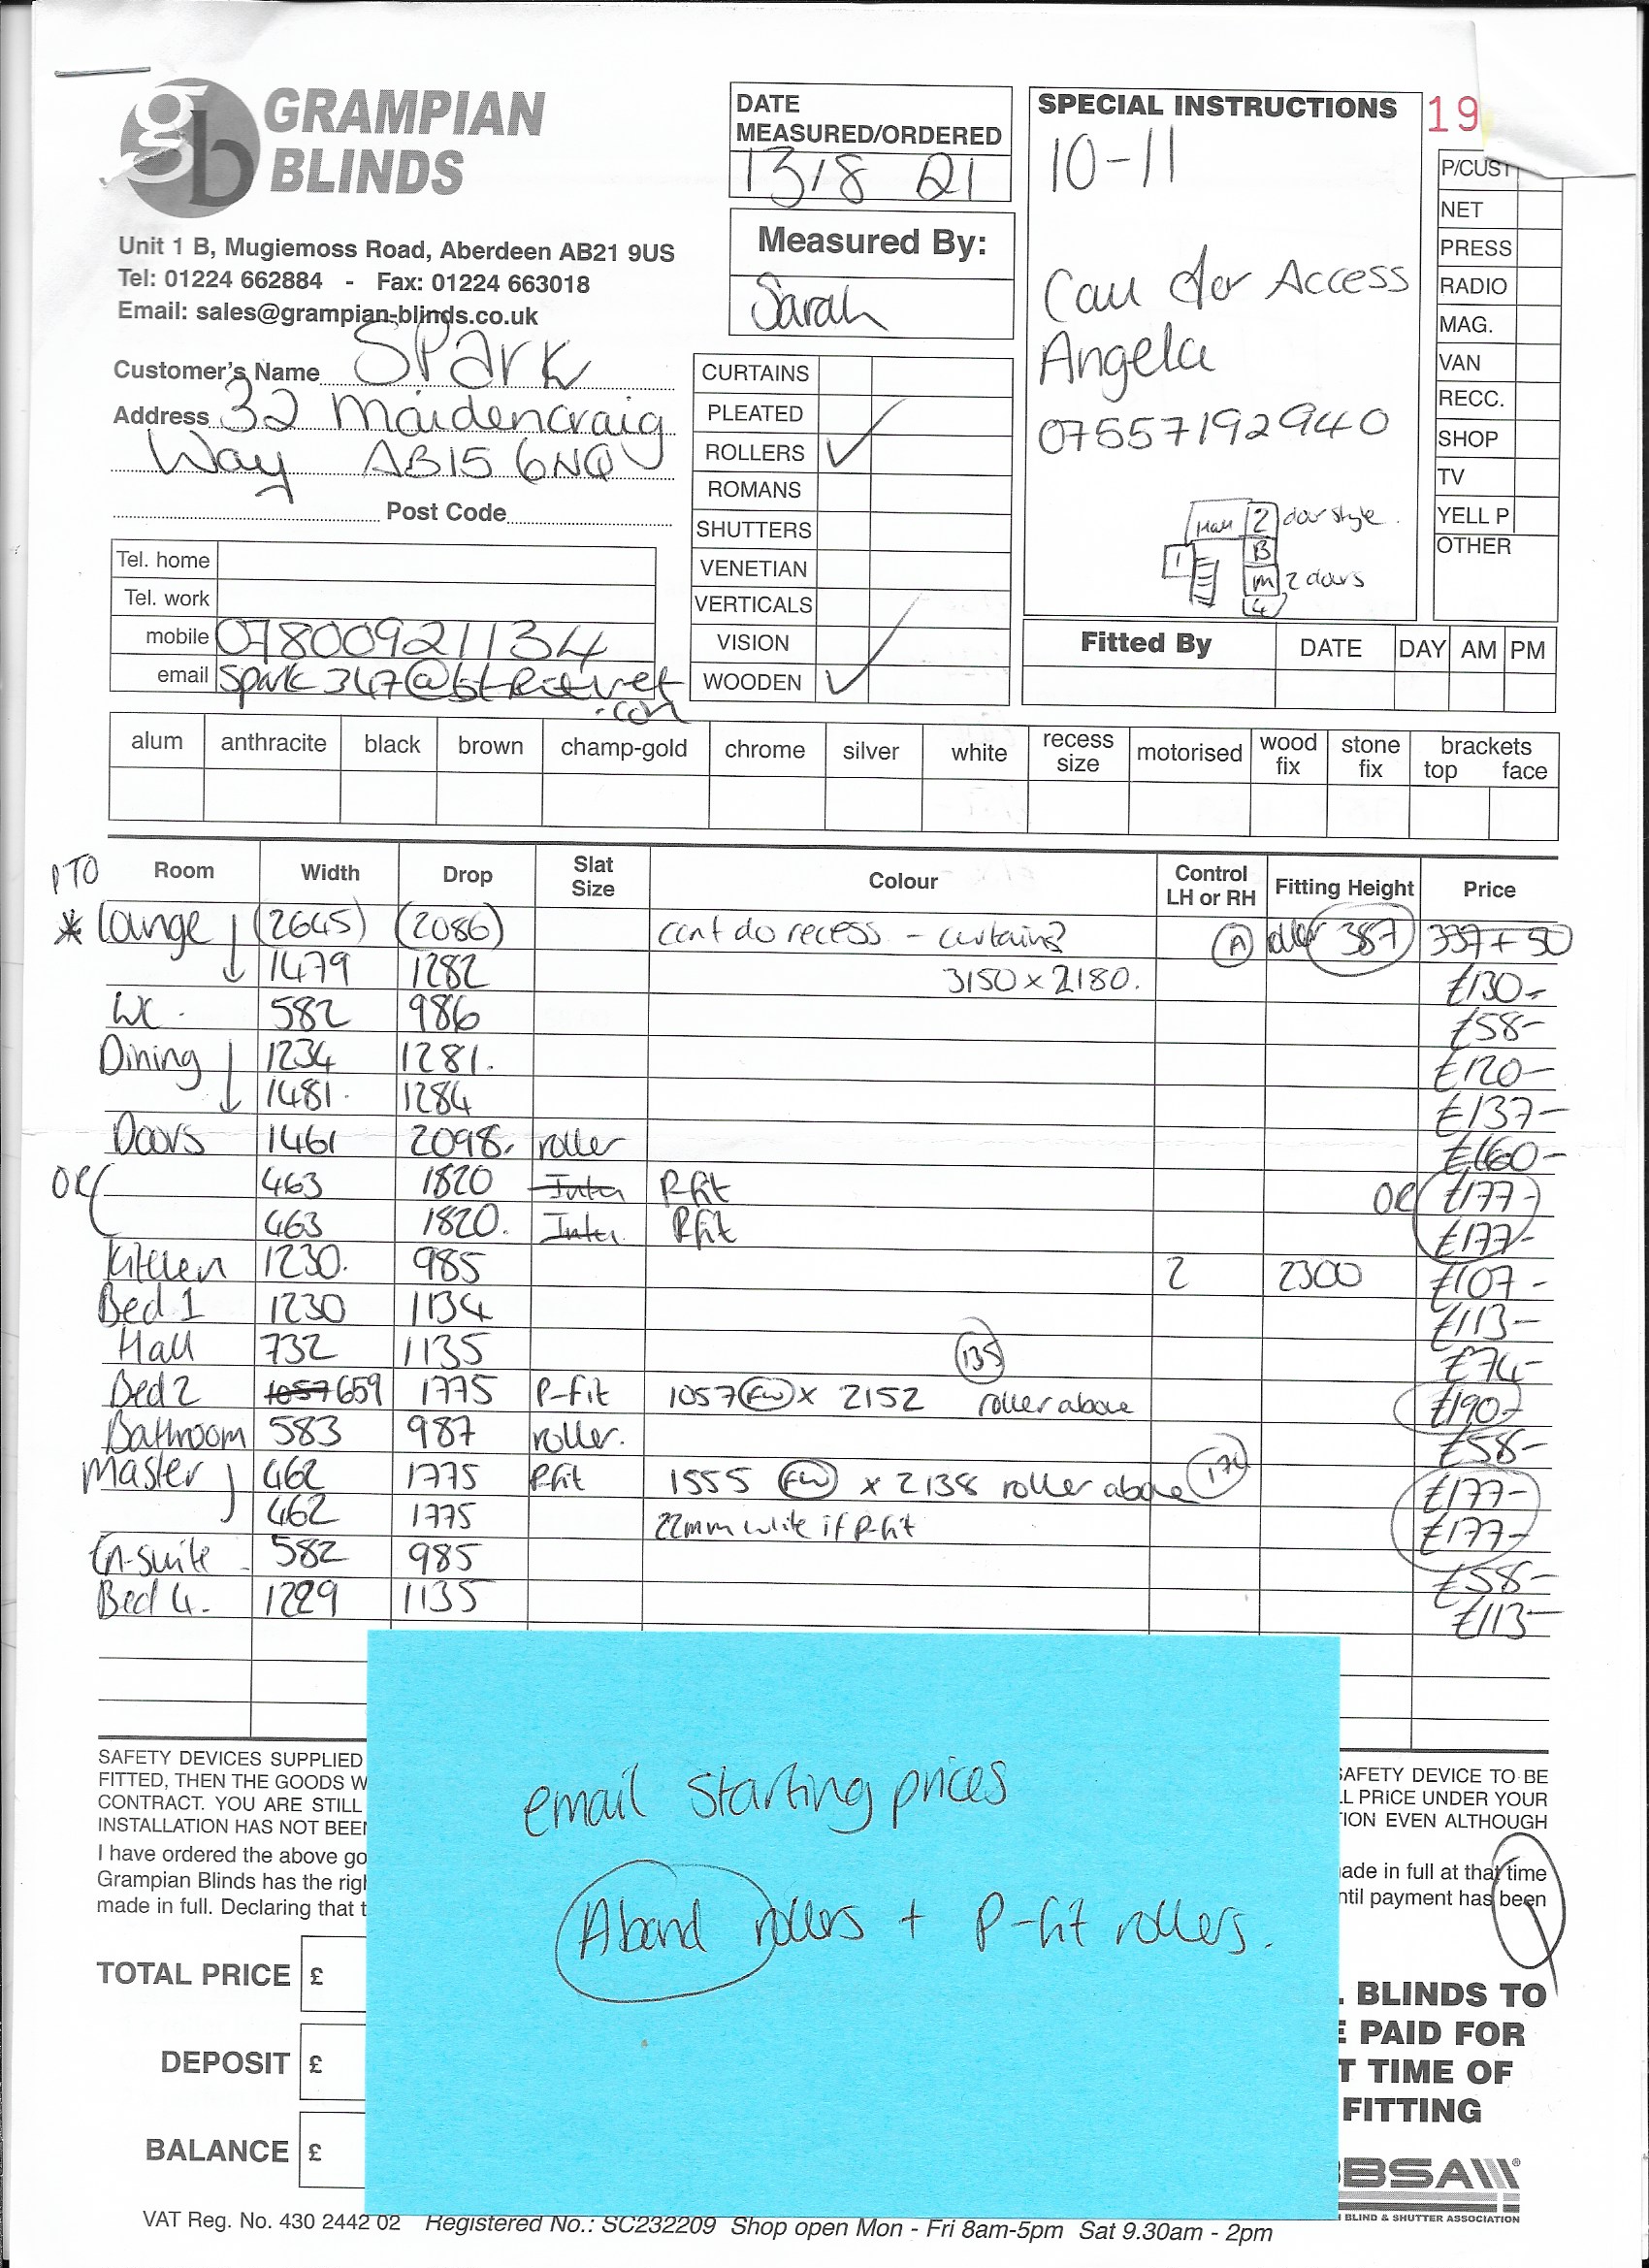 GRAMPIAN
BLINDS
Unit 1 B, Mugiemoss Road, Aberdeen AB21 9US
Tel: 01224 662884 - Fax: 01224 663018
Email: sales@grampian-blinds.co.uk
Customer's Name Spark
Address 32 Maidencraig
Way AB15 6NQ
Post Code
Tel. home
Tel. work
mobile 07800921134
email
.com
DATE
MEASURED/ORDERED
13/8 21
Measured By:
Sarah
CURTAINS
PLEATED
ROLLERS ✓
ROMANS
SHUTTERS
VENETIAN
VERTICALS
VISION
WOODEN ✓
SPECIAL INSTRUCTIONS
10-11
Call for Access
Angela
07557192940
Hall 2 door style.
1 B
M 2 doors
4
19
P/CUST
NET
PRESS
RADIO
MAG.
VAN
RECC.
SHOP
TV
YELL P
OTHER
Fitted By DATE DAY AM PM
alum anthracite black brown champ-gold chrome silver white recess size motorised wood fix stone fix brackets top face
PTO Room Width Drop Slat Size Colour Control LH or RH Fitting Height Price
* Lounge (2645) (2086) cant do recess - curtains? A 387 337 + 50
1479 1282 3150 x 2180. £130-
WC. 582 986 £58-
Dining 1234 1281. £120-
1481. 1284 £137-
Doors 1461 2098. roller £160-
OR 463 1820 Inter P-fit OR £177-
463 1820. Inter P-fit £177-
Kitchen 1230. 985 2 2300 £107-
Bed 1 1230 1134 £113-
Hall 732 1135 135 £74-
Bed 2 1057 659 1775 P-fit 1057 FW x 2152 roller above £190-
Bathroom 583 987 roller. £58-
Master 462 1775 P-fit 1555 FW x 2138 roller above £177-
462 1775 22mm white if P-fit £177-
En-suite 582 985 £58-
Bed 4. 1229 1135 £113-
email starting prices
A band rollers + P-fit rollers.
SAFETY DEVICES SUPPLIED
FITTED, THEN THE GOODS W
CONTRACT. YOU ARE STILL
INSTALLATION HAS NOT BEE
SAFETY DEVICE TO BE
LL PRICE UNDER YOUR
TION EVEN ALTHOUGH
I have ordered the above go
Grampian Blinds has the righ
made in full. Declaring that t
ade in full at that time
ntil payment has been
TOTAL PRICE £
DEPOSIT £
BALANCE £
BLINDS TO
PAID FOR
T TIME OF
FITTING
BBSA
BLIND & SHUTTER ASSOCIATION
VAT Reg. No. 430 2442 02 Registered No.: SC232209 Shop open Mon - Fri 8am-5pm Sat 9.30am - 2pm